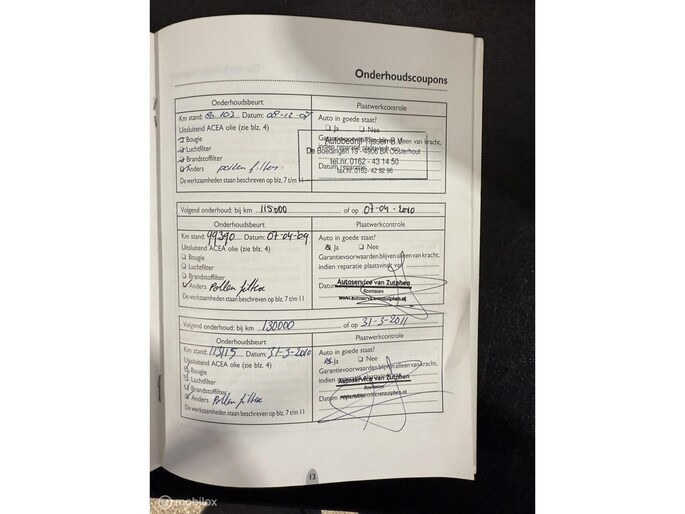 Onderhoudscoupons
Onderhoudsbeurt
Plaatwerkcontrole
Km stand: 80.103 Datum: 08-12-07
Auto in goede staat?
Uitsluitend ACEA olie (zie blz. 4)
Ja Nee
Bougie
Garantievoorwaarden blijven alleen van kracht,
Luchtfilter
indien reparatie plaatsvindt van
Brandstoffilter
Anders pollen filter
Datum reparatie
De werkzaamheden staan beschreven op blz. 7 t/m 11
Autobedrijf Tijssen B.V.
De Boedingen 15 - 4906 BA Oosterhout
tel.nr. 0162 - 43 14 50
fax.nr. 0162 - 42 92 96
Volgend onderhoud: bij km 115000 of op 07-04-2010
Onderhoudsbeurt
Plaatwerkcontrole
Km stand: 99390 Datum: 07-04-09
Auto in goede staat?
Uitsluitend ACEA olie (zie blz. 4)
Ja Nee
Bougie
Garantievoorwaarden blijven alleen van kracht,
Luchtfilter
indien reparatie plaatsvindt van
Brandstoffilter
Anders Pollen filter
Datum
De werkzaamheden staan beschreven op blz. 7 t/m 11
Autoservice van Zutphen
Rosmalen
www.autoservicevanzutphen.nl
Volgend onderhoud: bij km 130000 of op 31-3-2011
Onderhoudsbeurt
Plaatwerkcontrole
Km stand: 113115 Datum: 31-3-2010
Auto in goede staat?
Uitsluitend ACEA olie (zie blz. 4)
Ja Nee
Bougie
Garantievoorwaarden blijven alleen van kracht,
Luchtfilter
indien reparatie plaatsvindt van
Brandstoffilter
Anders Pollen filter
Datum
De werkzaamheden staan beschreven op blz. 7 t/m 11
Autoservice van Zutphen
Rosmalen
www.autoservicevanzutphen.nl
13
mobilox